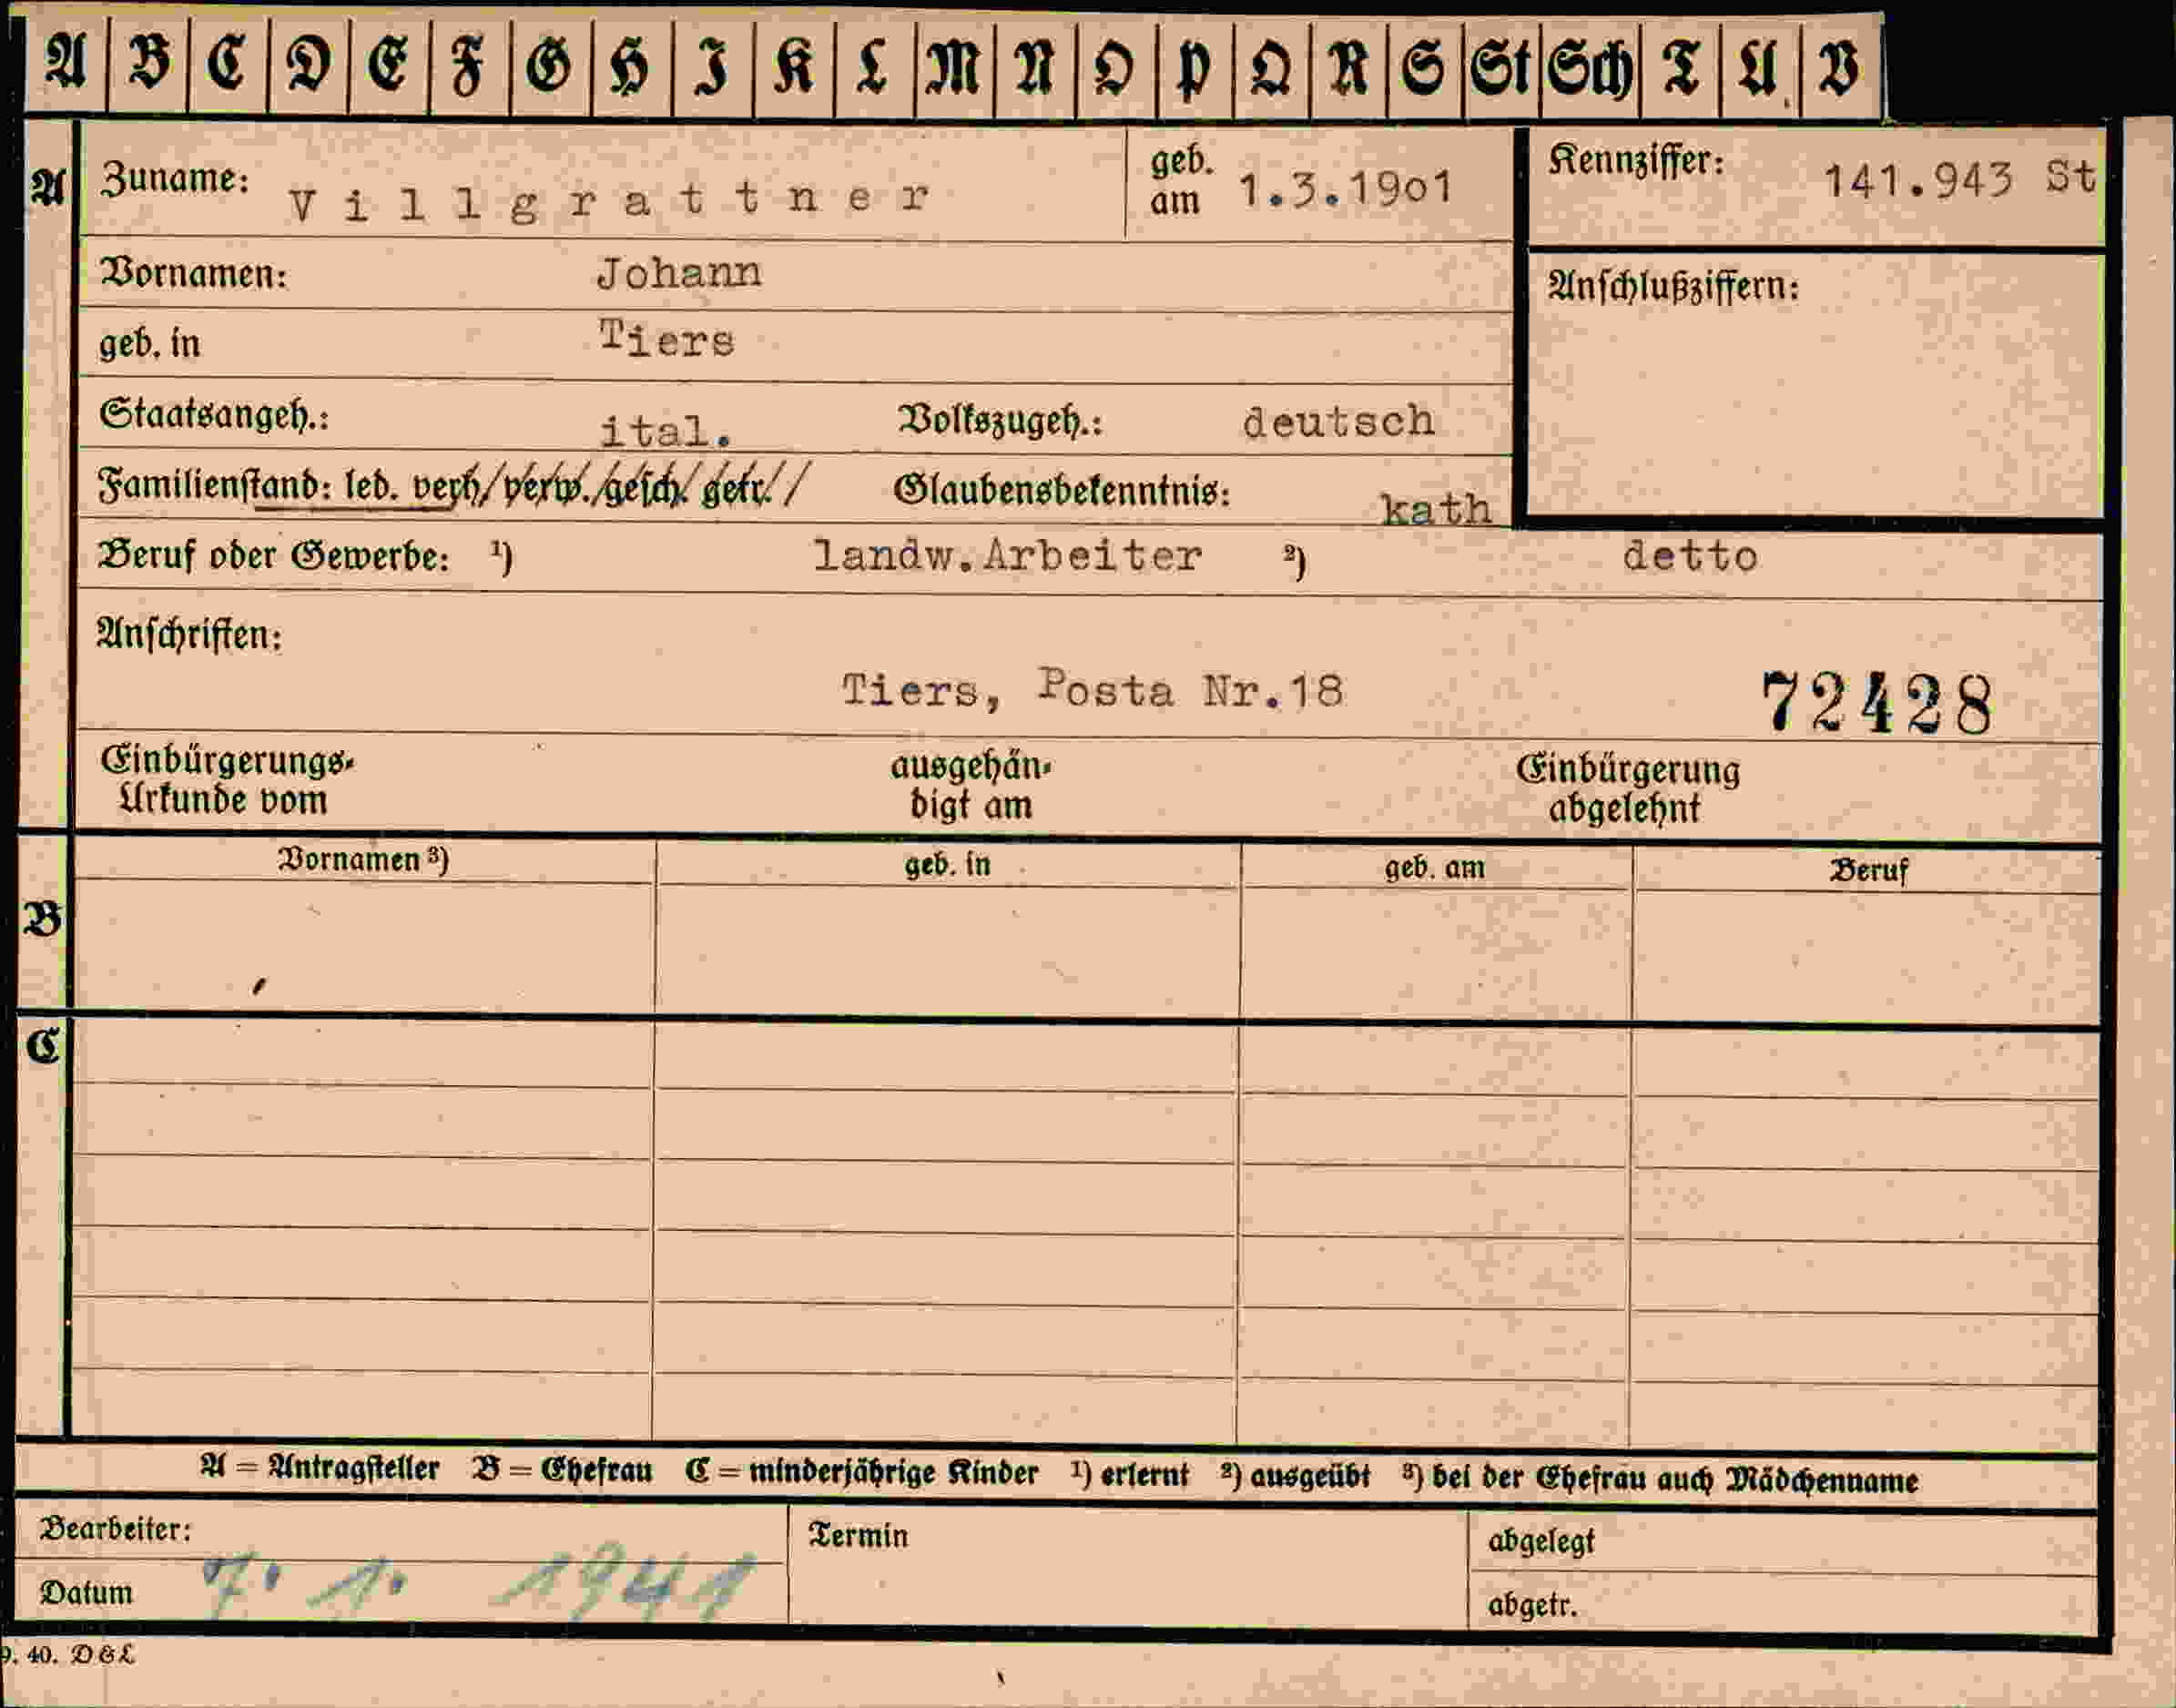 A B C D E F G H I K L M N O P Q R S St Sch T U V
A Zuname: Villgrattner geb. am 1.3.19o1 Kennziffer: 141.943 St
Vornamen: Johann Anschlußziffern:
geb. in Tiers
Staatsangeh.: ital. Volkszugeh.: deutsch
Familienstand: led. verh/verw./gesch./getr./ Glaubensbekenntnis: kath
Beruf oder Gewerbe: ¹) landw.Arbeiter ²) detto
Anschriften:
Tiers, Posta Nr.18 72428
Einbürgerungs- ausgehän- Einbürgerung
Urkunde vom digt am abgelehnt
Vornamen ³) geb. in geb. am Beruf
B
C
A = Antragsteller B = Ehefrau C = minderjährige Kinder ¹) erlernt ²) ausgeübt ³) bei der Ehefrau auch Mädchenname
Bearbeiter: Termin abgelegt
Datum 7. 1. 1941 abgetr.
9. 40. D & L